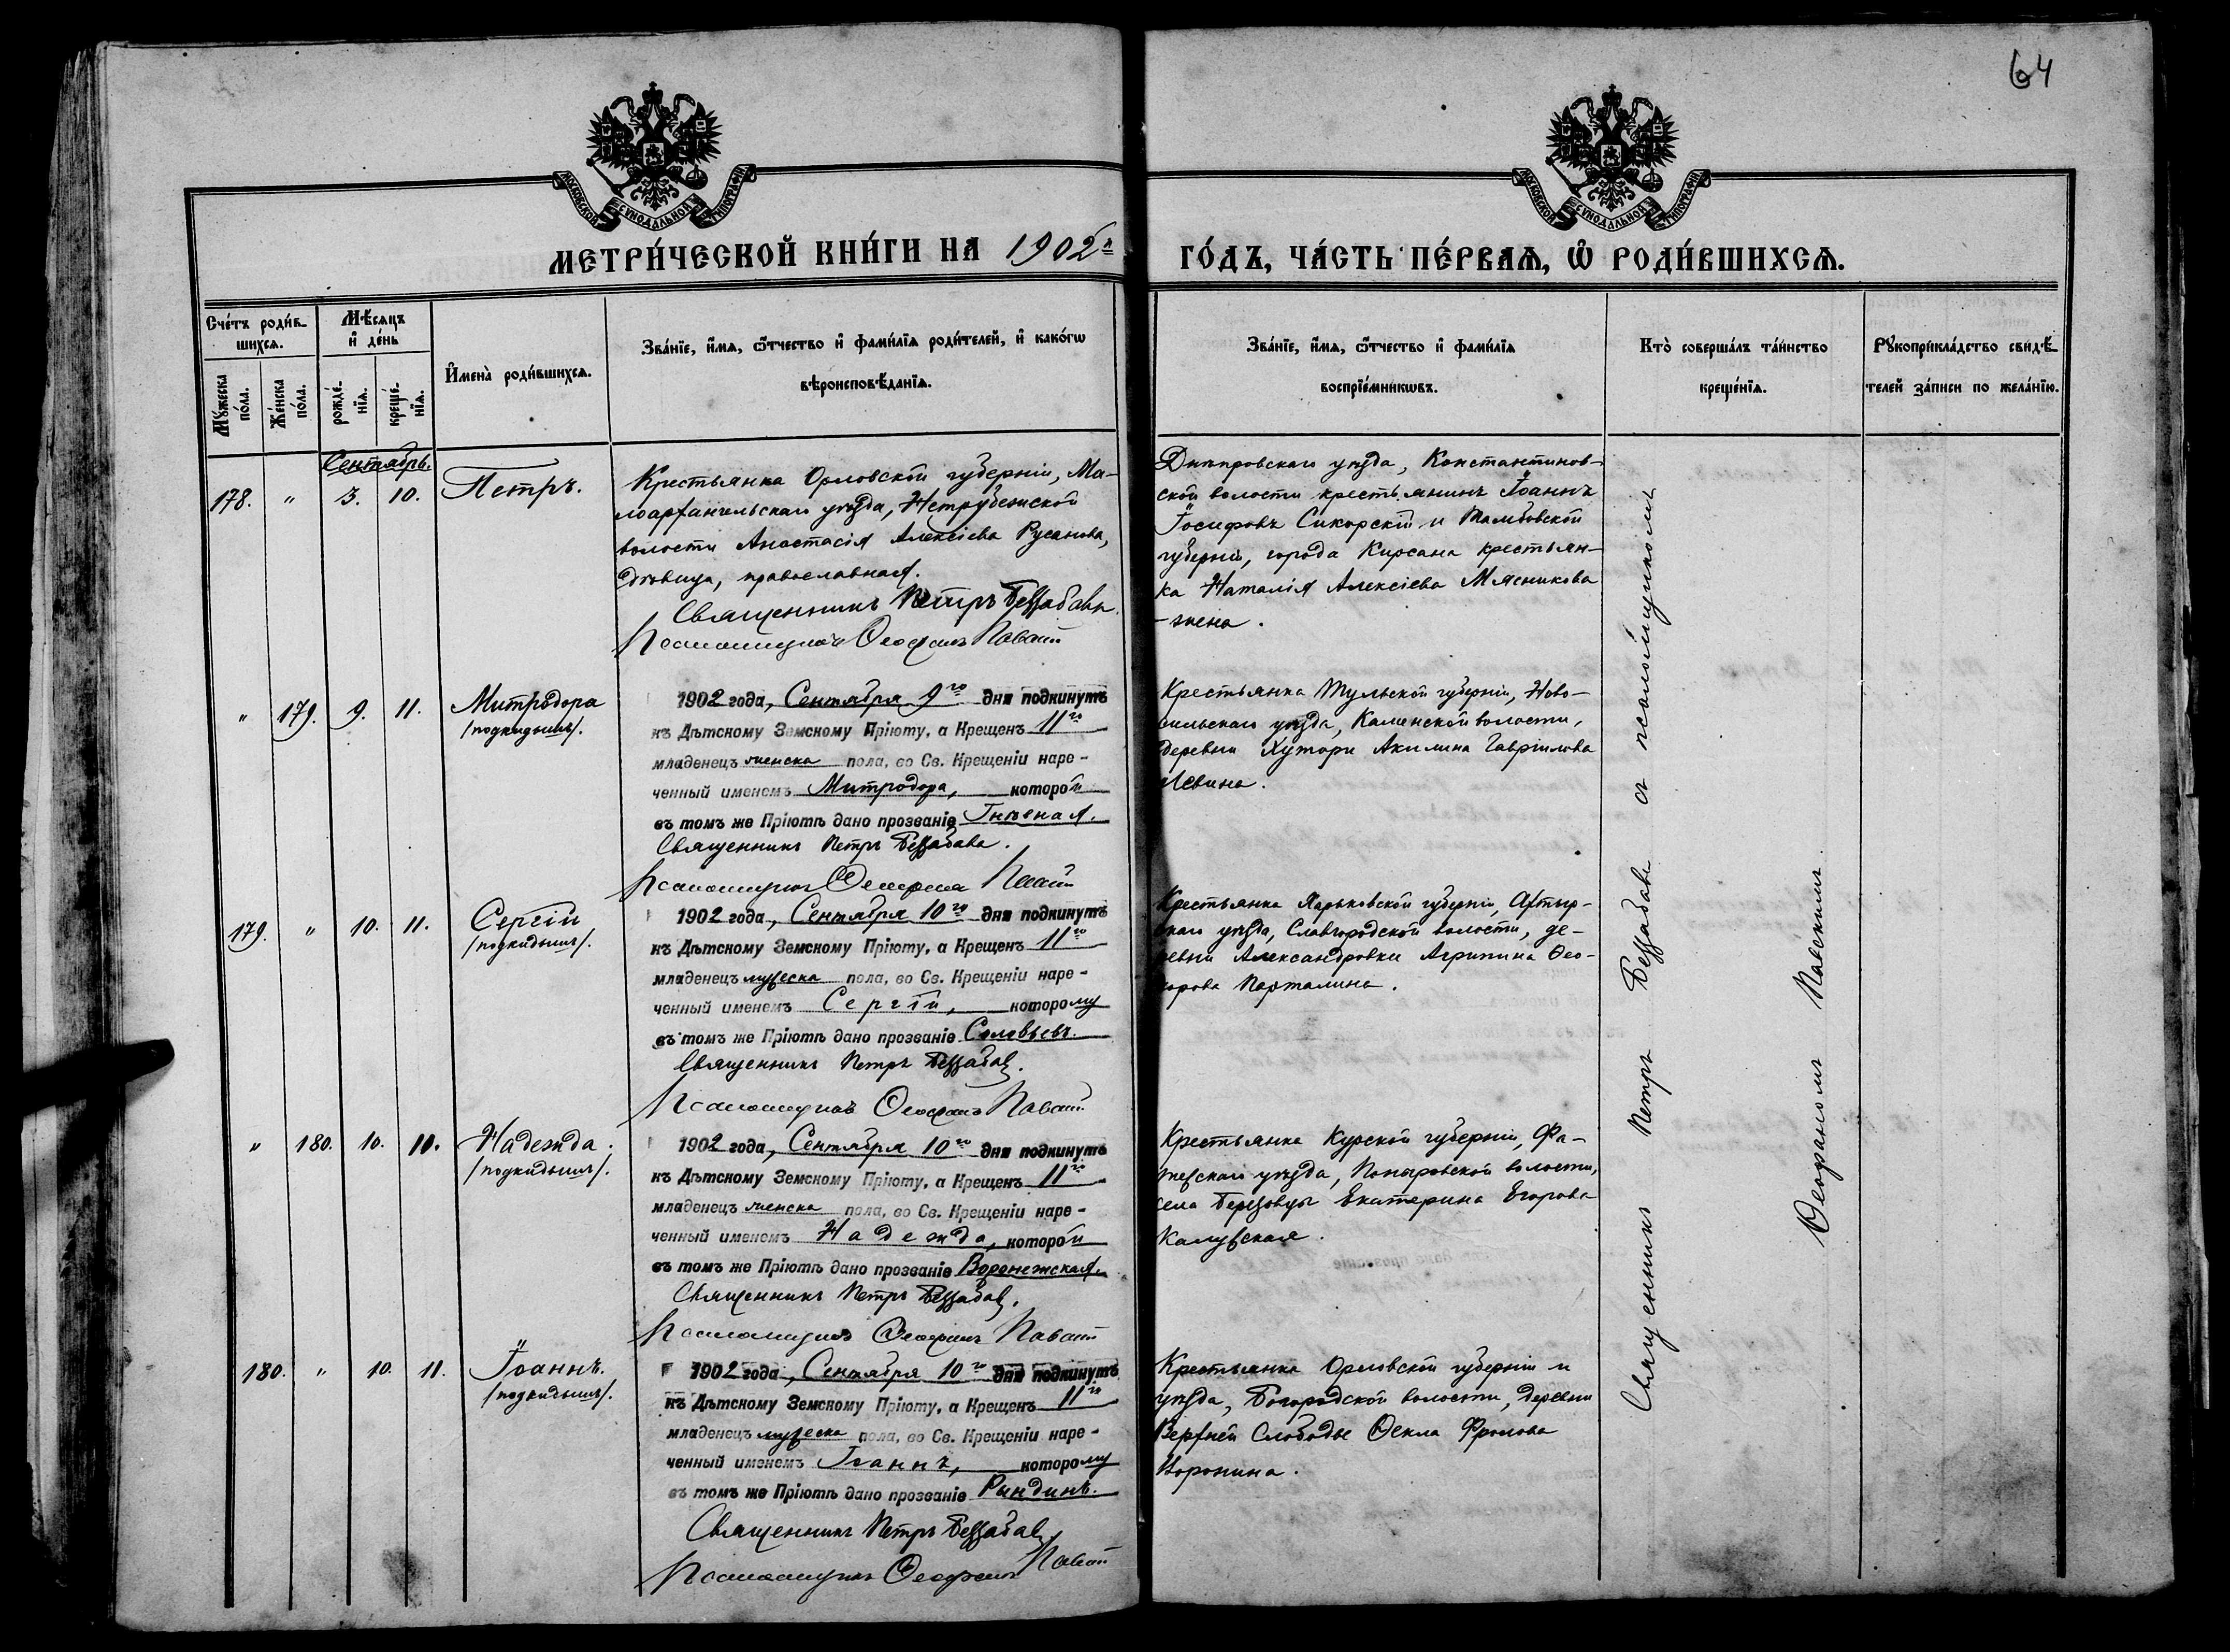 64
МОСКОВСКОЙ СѴНОДАЛЬНОЙ ТИПОГРАФІИ
МОСКОВСКОЙ СѴНОДАЛЬНОЙ ТИПОГРАФІИ
МЕТРИ́ЧЕСКОЙ КНИ́ГИ НА 1902й
ГО́ДЪ, ЧА́СТЬ ПЕ́РВАѦ, Ѡ҆ РОДИ́ВШИХСѦ.
Сче́тъ роди́в-
шихсѧ.
Мꙋ́жеска по́ла.
Же́нска по́ла.
Мѣ́сѧцъ
и҆ де́нь
рожде́-
нїѧ.
креще́-
нїѧ.
И҆мена̀ роди́вшихсѧ.
Зва́нїе, и҆́мѧ, ѻ҆́тчество и҆ фами́лїѧ роди́телей, и҆ како́гѡ
вѣроисповѣ́данїѧ.
Зва́нїе, и҆́мѧ, ѻ҆́тчество и҆ фами́лїѧ
воспрїе́мникѡвъ.
Кто̀ соверша́лъ та́инство
креще́нїѧ.
Рꙋкоприкла́дство свидѣ́-
телей за́писи по жела́нїю.
Сентябрь.
178. " 3. 10. Петръ.
Крестьянка Орловской губерніи, Ма-
лоархангельскаго уѣзда, Нетрубежской
волости Анастасія Алексіева Русанова,
дѣвица, православная.
Священникъ Петръ Беззабава
Псаломщикъ Ѳеофанъ Павскій
Днѣпровскаго уѣзда, Константинов-
ской волости крестьянинъ Іоаннъ
Іосифовъ Сикорскій и Тамбовской
губерніи, города Кирсана крестьян-
ка Наталія Алексіева Мясникова
- жена.
" 179. 9. 11. Митродора
/подкидышъ/.
1902 года, Сентября 9го дня подкинутъ
къ Дѣтскому Земскому Пріюту, а Крещенъ 11го
младенецъ женска пола, во Св. Крещеніи наре-
ченный именемъ Митродора, которой
въ томъ же Пріютѣ дано прозваніе Гнѣвная.
Священникъ Петръ Беззабава.
Псаломщикъ Ѳеофанъ Павскій
Крестьянка Тульской губерніи, Ново-
сильскаго уѣзда, Каменской волости,
деревни Хутори Акилина Гавріилова
Левина.
179. " 10. 11. Сергій
/подкидышъ/.
1902 года, Сентября 10го дня подкинутъ
къ Дѣтскому Земскому Пріюту, а Крещенъ 11го
младенецъ мужеска пола, во Св. Крещеніи наре-
ченный именемъ Сергій, которому
въ томъ же Пріютѣ дано прозваніе Соловьевъ.
Священникъ Петръ Беззабава.
Псаломщикъ Ѳеофанъ Павскій
Крестьянка Харьковской губерніи, Ахтыр-
скаго уѣзда, Славгородской волости, де-
ревни Александровки Агрипина Ѳео-
дорова Парталина.
" 180. 10. 10. Надежда.
/подкидышъ/.
1902 года, Сентября 10го дня подкинутъ
къ Дѣтскому Земскому Пріюту, а Крещенъ 11го
младенецъ женска пола, во Св. Крещеніи наре-
ченный именемъ Надежда, которой
въ томъ же Пріютѣ дано прозваніе Воронежская.
Священникъ Петръ Беззабава.
Псаломщикъ Ѳеофанъ Павскій
Крестьянка Курской губерніи, Фа-
тежскаго уѣзда, Поныровской волости,
села Березовцы Екатерина Егорова
Калужская.
180. " 10. 11. Іоаннъ.
/подкидышъ/.
1902 года, Сентября 10го дня подкинутъ
къ Дѣтскому Земскому Пріюту, а Крещенъ 11го
младенецъ мужеска пола, во Св. Крещеніи наре-
ченный именемъ Іоаннъ, которому
въ томъ же Пріютѣ дано прозваніе Рындинъ.
Священникъ Петръ Беззабава
Псаломщикъ Ѳеофанъ Павскій
Крестьянка Орловской губерніи и
уѣзда, Богородской волости, деревни
Верхней Слободы Ѳекла Фролова
Воронина.
Священникъ Петръ Беззабава съ псаломщикомъ
Ѳеофаномъ Павскимъ.